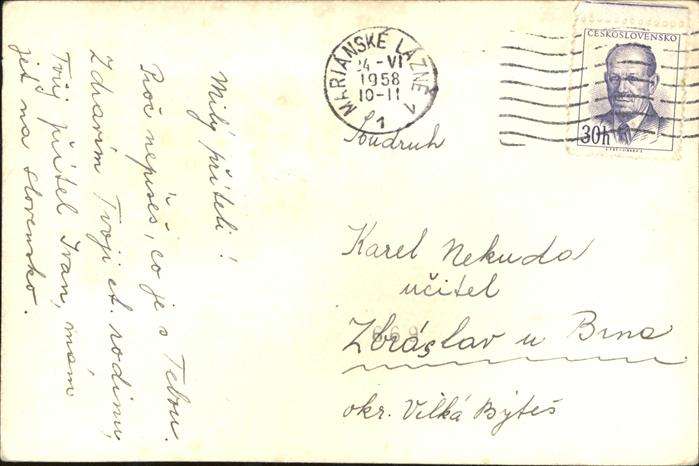 Milý příteli!
Proč nepíšeš, co je s Tebou.
Zdravím Tvoji ct. rodinu,
Tvůj přítel Ivan, mám
jet na slovensko.
MARIÁNSKÉ LÁZNĚ 7
24 -VI
1958
10-11
1
ČESKOSLOVENSKO
30h
Soudruh
Karel Nekuda
učitel
Zbráslav u Brna
okr. Vilká Býteš